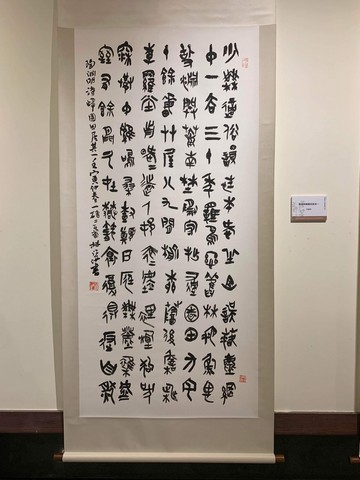 少無適俗韻性本愛丘山誤落塵網
中一去三十年羈鳥戀舊林池魚思
故淵開荒南野際守拙歸園田方宅
十餘畝草屋八九間榆柳蔭後簷桃
李羅堂前曖〻遠人村依〻墟里煙狗吠
深巷中雞鳴桑樹顛戶庭無塵雜虛
室有餘閒久在樊籠裡復得返自然
陶淵明詩歸園田居其一壬寅仲春一硯林書